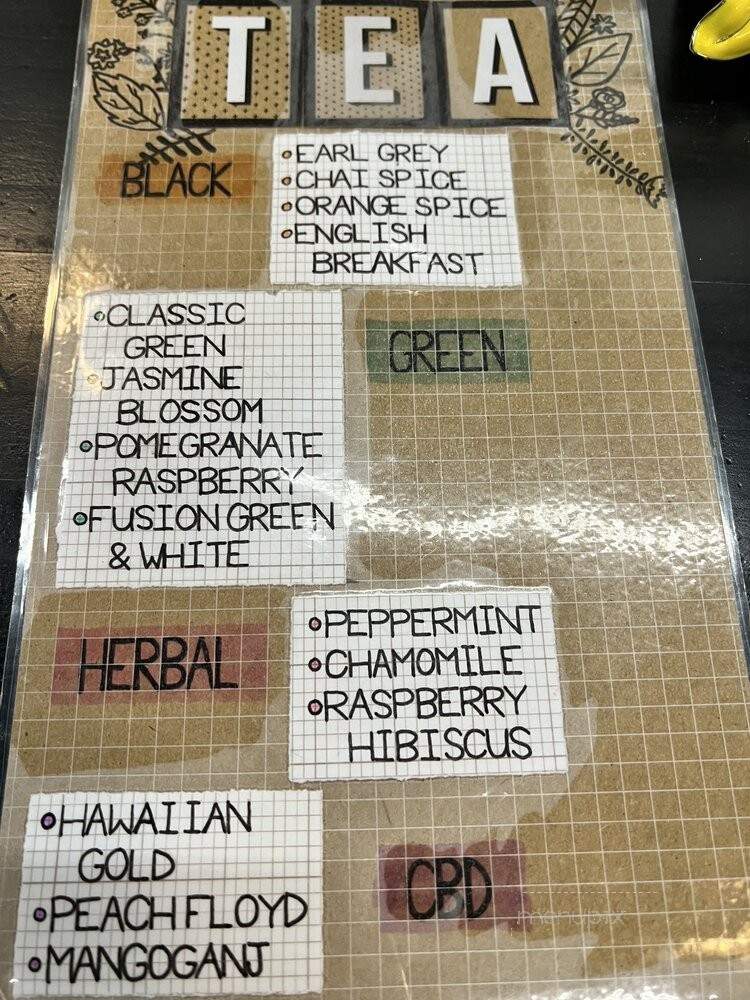 TEA
BLACK
•EARL GREY
•CHAI SPICE
•ORANGE SPICE
•ENGLISH
BREAKFAST
GREEN
•CLASSIC
GREEN
•JASMINE
BLOSSOM
•POMEGRANATE
RASPBERRY
•FUSION GREEN
& WHITE
HERBAL
•PEPPERMINT
•CHAMOMILE
•RASPBERRY
HIBISCUS
CBD
•HAWAIIAN
GOLD
•PEACH FLOYD
•MANGOGANJ